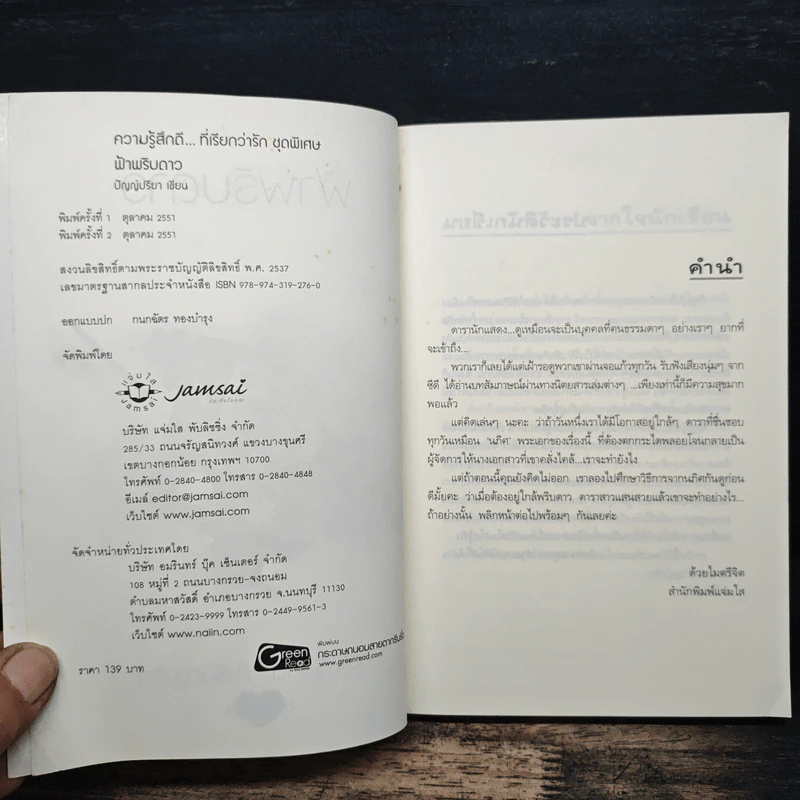 ความรู้สึกดี... ที่เรียกว่ารัก ชุดพิเศษ
ฟ้าพริบดาว
ปัญญ์ปรียา เขียน
พิมพ์ครั้งที่ 1 ตุลาคม 2551
พิมพ์ครั้งที่ 2 ตุลาคม 2551
สงวนลิขสิทธิ์ตามพระราชบัญญัติลิขสิทธิ์ พ.ศ. 2537
เลขมาตรฐานสากลประจำหนังสือ ISBN 978-974-319-276-0
ออกแบบปก กนกฉัตร ทองบำรุง
จัดพิมพ์โดย
แจ่มใส
JAMSAI
Jamsai
บริษัท แจ่มใส พับลิชชิ่ง จำกัด
285/33 ถนนจรัญสนิทวงศ์ แขวงบางขุนศรี
เขตบางกอกน้อย กรุงเทพฯ 10700
โทรศัพท์ 0-2840-4800 โทรสาร 0-2840-4848
อีเมล์ editor@jamsai.com
เว็บไซต์ www.jamsai.com
จัดจำหน่ายทั่วประเทศโดย
บริษัท อมรินทร์ บุ๊ค เซ็นเตอร์ จำกัด
108 หมู่ที่ 2 ถนนบางกรวย-จงถนอม
ตำบลมหาสวัสดิ์ อำเภอบางกรวย จ.นนทบุรี 11130
โทรศัพท์ 0-2423-9999 โทรสาร 0-2449-9561-3
เว็บไซต์ www.naiin.com
ราคา 139 บาท
Green
Read
พิมพ์บน
กระดาษถนอมสายตากรีนรี้ด
www.greenread.com
คำนำ
ดารานักแสดง...ดูเหมือนจะเป็นบุคคลที่คนธรรมดาๆ อย่างเราๆ ยากที่
จะเข้าถึง...
พวกเราก็เลยได้แต่เฝ้ารอดูพวกเขาผ่านจอแก้วทุกวัน รับฟังเสียงนุ่มๆ จาก
ซีดี ได้อ่านบทสัมภาษณ์ผ่านทางนิตยสารเล่มต่างๆ ...เพียงเท่านี้ก็มีความสุขมาก
พอแล้ว
แต่คิดเล่นๆ นะคะ ว่าถ้าวันหนึ่งเราได้มีโอกาสอยู่ใกล้ๆ ดาราที่ชื่นชอบ
ทุกวันเหมือน 'นภัค' พระเอกของเรื่องนี้ ที่ต้องตกกระไดพลอยโจนกลายเป็น
ผู้จัดการให้นางเอกสาวที่เขาคลั่งไคล้...เราจะทำยังไง
แต่ถ้าตอนนี้คุณยังคิดไม่ออก เราลองไปศึกษาวิธีการจากนภัคกันดูก่อน
ดีมั้ยคะ ว่าเมื่อต้องอยู่ใกล้พริบดาว ดาราสาวแสนสวยแล้วเขาจะทำอย่างไร...
ถ้าอย่างนั้น พลิกหน้าต่อไปพร้อมๆ กันเลยค่ะ
ด้วยไมตรีจิต
สำนักพิมพ์แจ่มใส